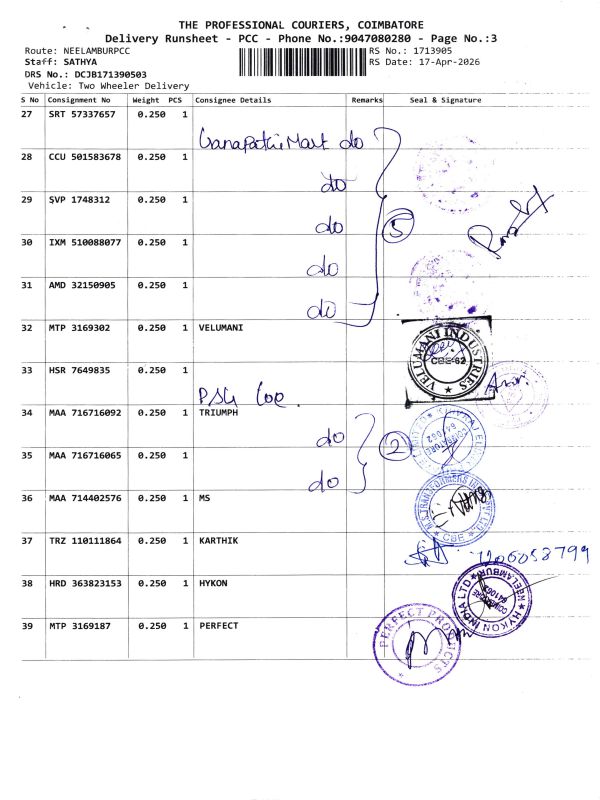 THE PROFESSIONAL COURIERS, COIMBATORE
Delivery Runsheet - PCC - Phone No.:9047080280 - Page No.:3
Route: NEELAMBURPCC
RS No.: 1713905
Staff: SATHYA
RS Date: 17-Apr-2026
DRS No.: DCJB171390503
Vehicle: Two Wheeler Delivery
S No Consignment No Weight PCS Consignee Details Remarks Seal & Signature
27 SRT 57337657 0.250 1
Ganapathi Mart do
28 CCU 501583678 0.250 1
do
29 SVP 1748312 0.250 1
do
5
30 IXM 510088077 0.250 1
do
31 AMD 32150905 0.250 1
do
32 MTP 3169302 0.250 1 VELUMANI
VELUMANI INDUSTRIES
CBE-62
33 HSR 7649835 0.250 1
PSG
34 MAA 716716092 0.250 1 TRIUMPH
do
2
COIMBATORE
641062
35 MAA 716716065 0.250 1
do
36 MAA 714402576 0.250 1 MS
CBE
37 TRZ 110111864 0.250 1 KARTHIK
38 HRD 363823153 0.250 1 HYKON
HYKON INDIA LTD
NEELAMBUR
39 MTP 3169187 0.250 1 PERFECT
PERFECT PRODUCTS